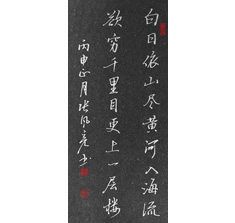 白日依山尽黄河入海流
欲穷千里目更上一层楼
丙申正月张风意书